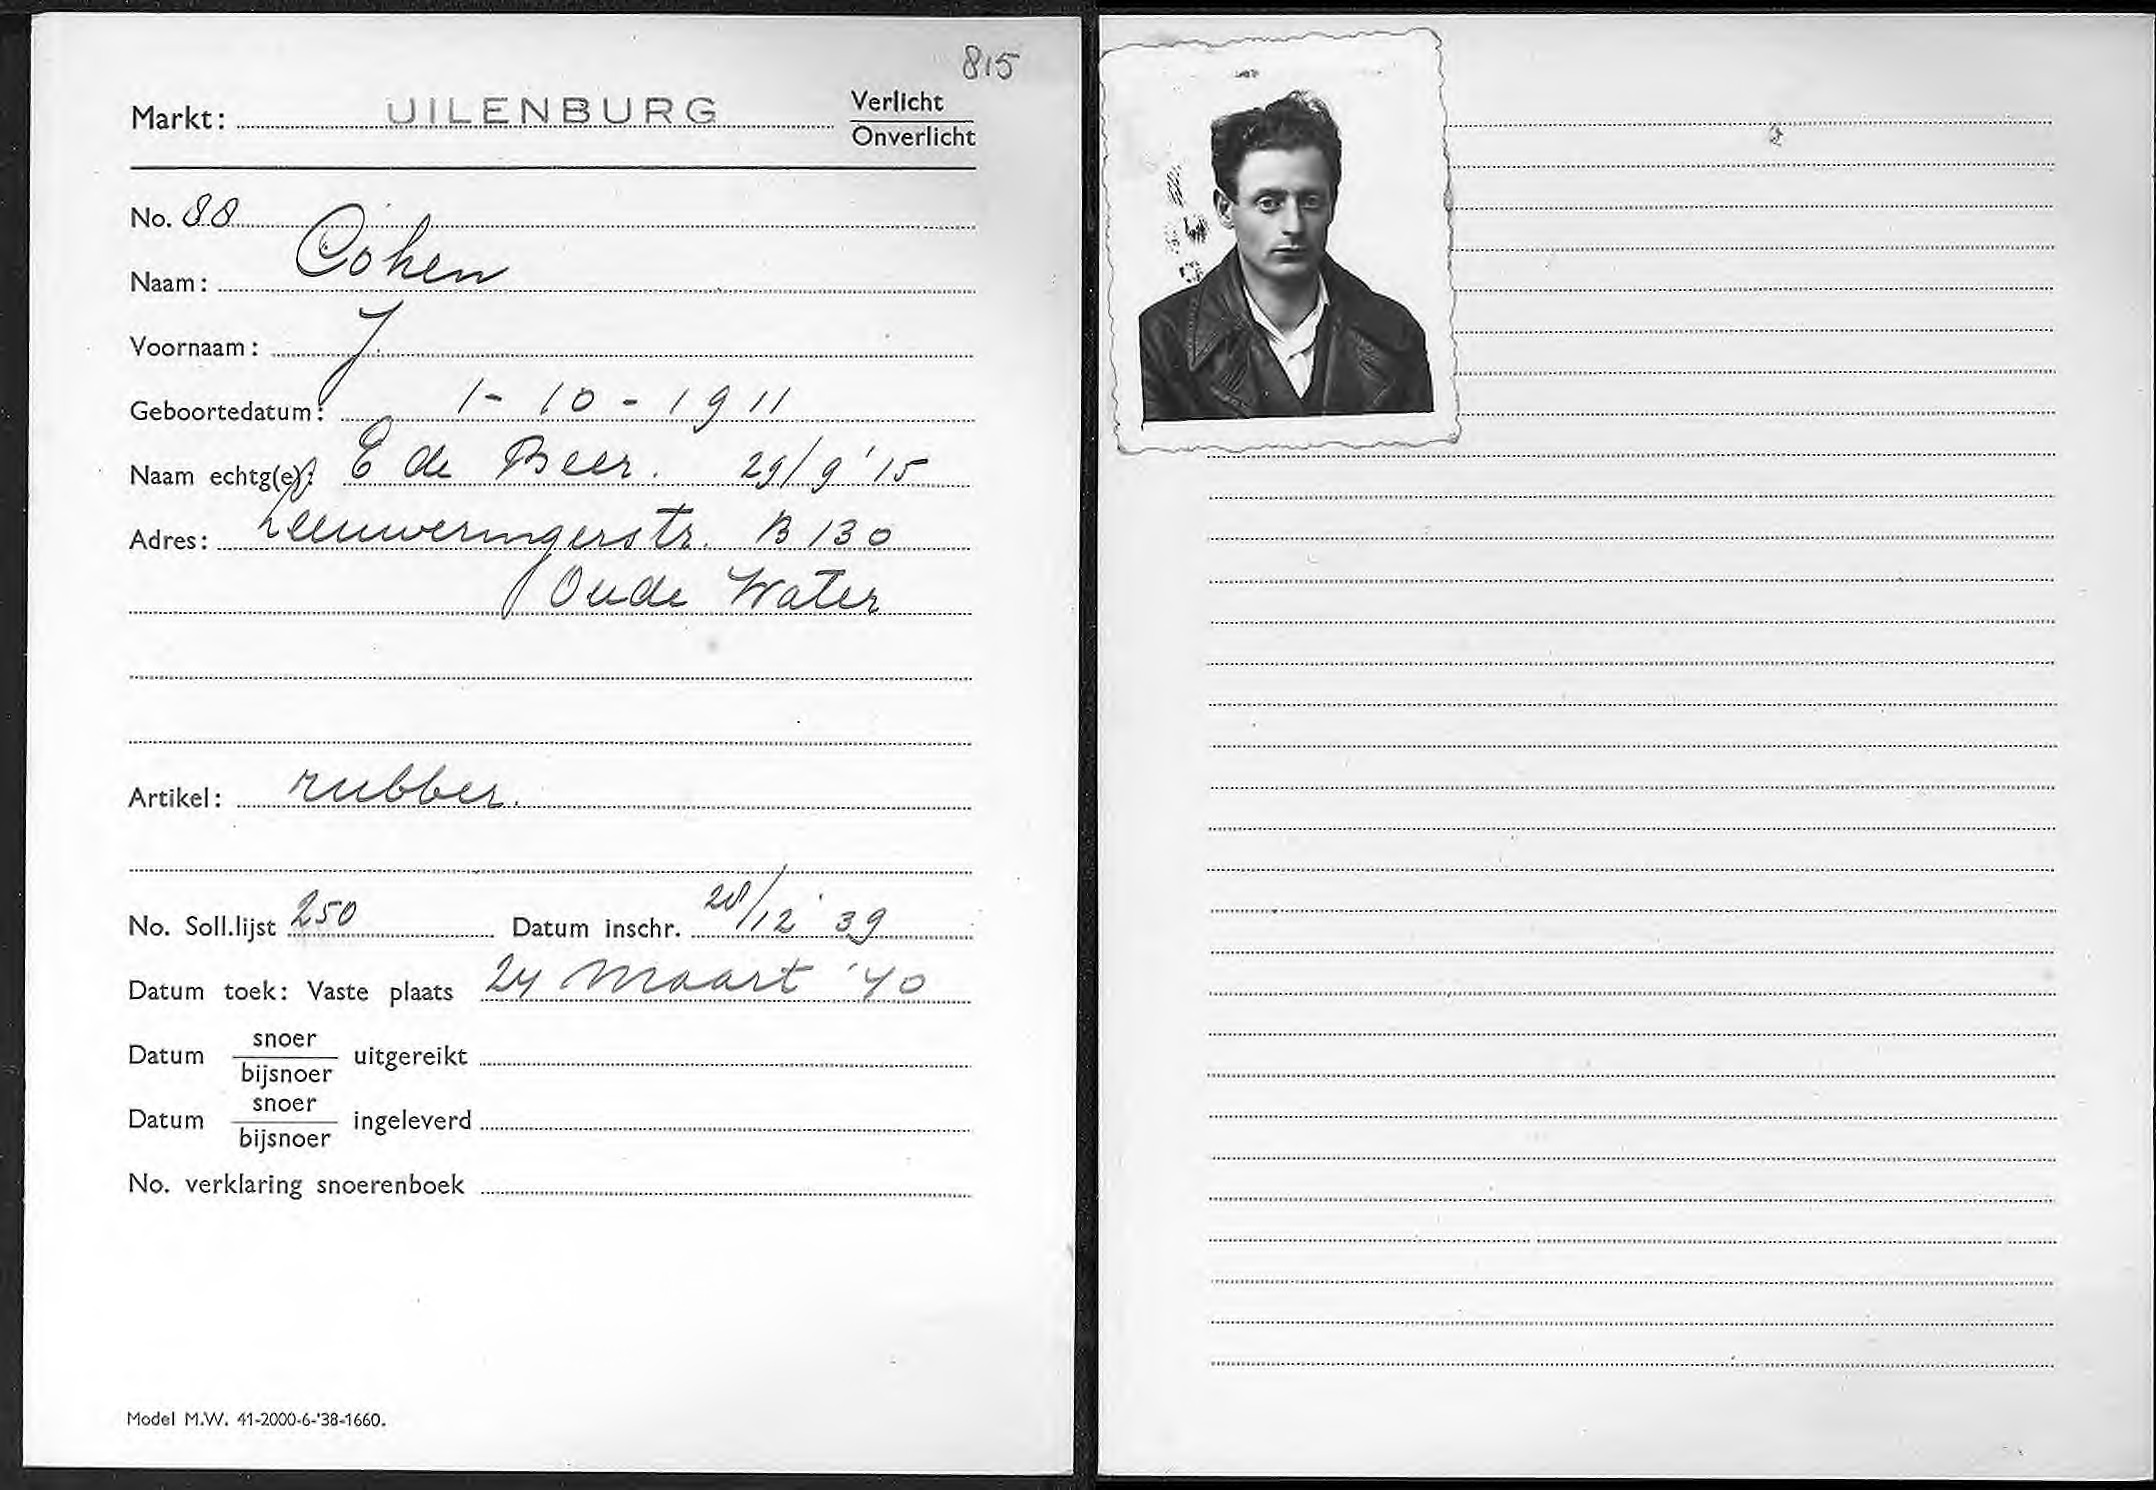 815
Markt: UILENBURG Verlicht
Onverlicht
No. 88
Naam: Cohen
Voornaam: J.
Geboortedatum: 1-10-1911
Naam echtg(e): E de Beer. 29/9 '15
Adres: Leeuweringerstr. B 130
Oude Water
Artikel: rubber.
No. Soll.lijst 250 Datum inschr. 28/12 '39
Datum toek: Vaste plaats 24 Maart '40
Datum snoer/bijsnoer uitgereikt
Datum snoer/bijsnoer ingeleverd
No. verklaring snoerenboek
Model M.W. 41-2000-6-'38-1660.